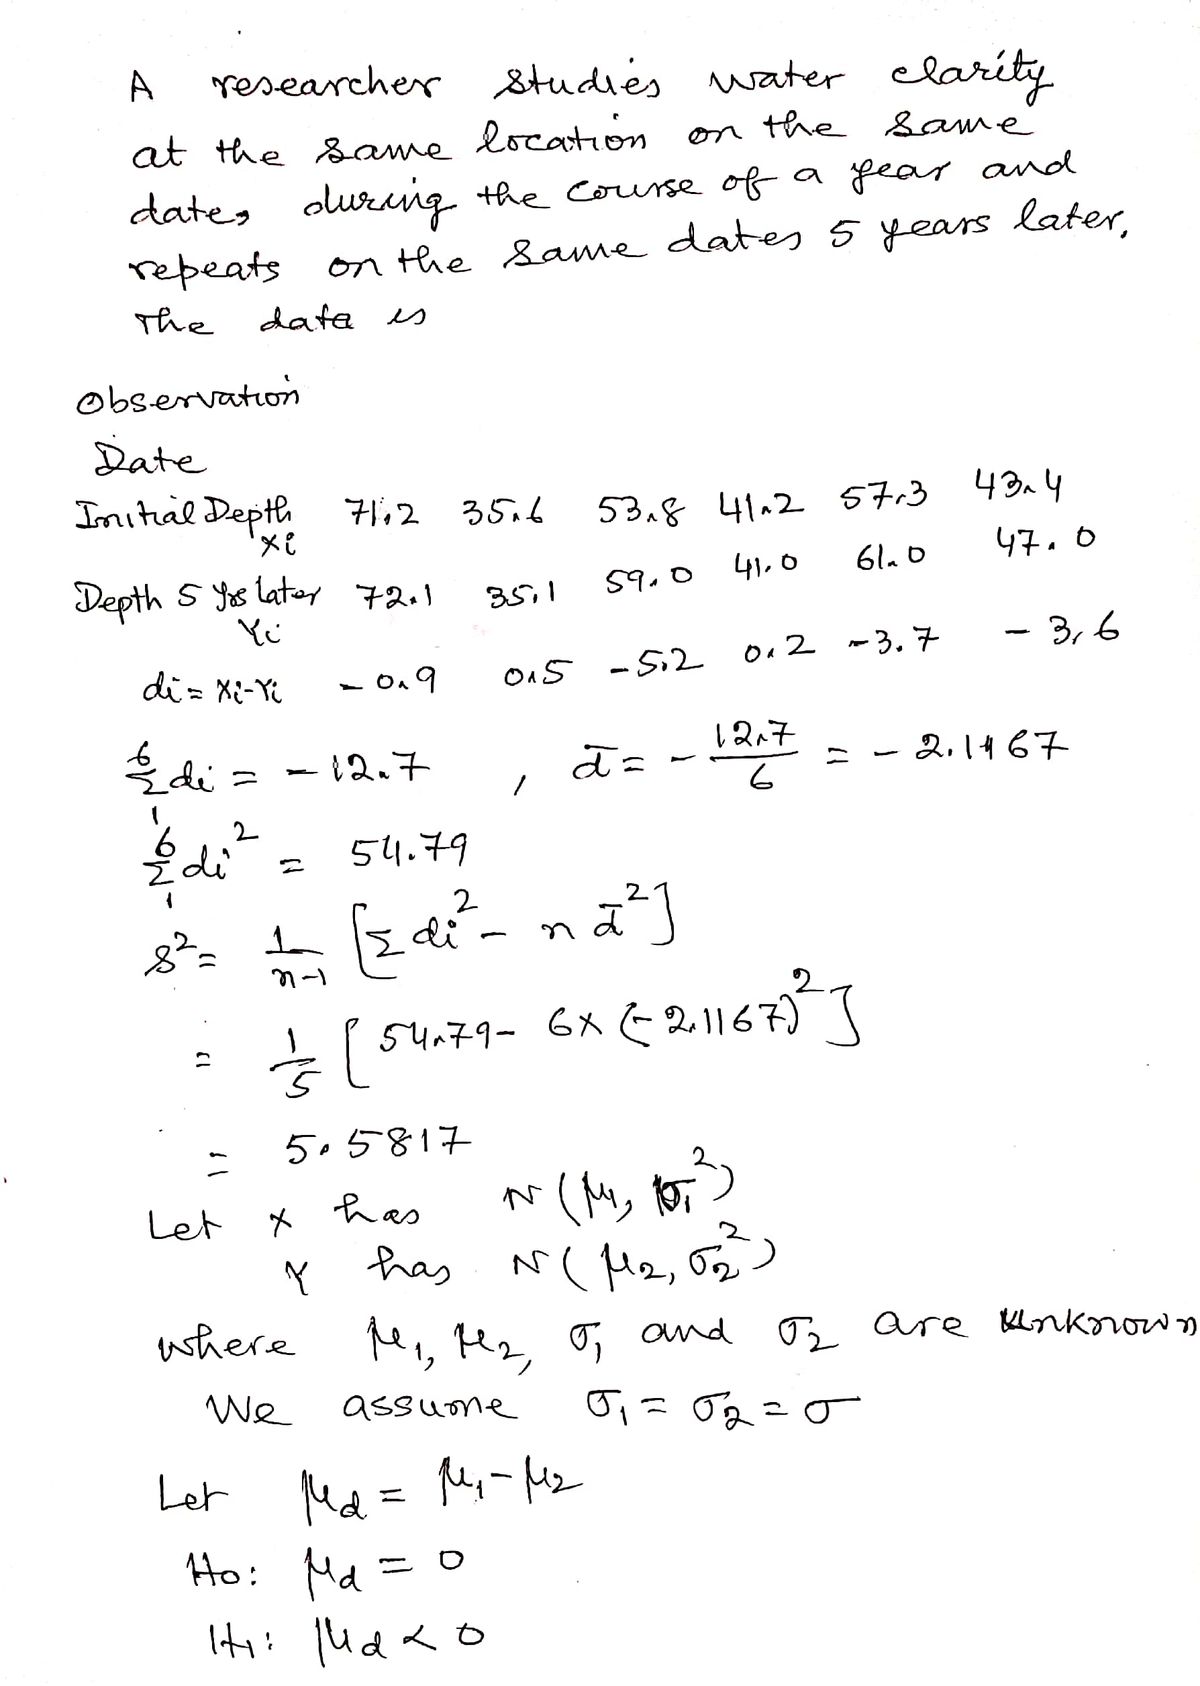 A researcher studies water clarity
at the same location on the same
dates during the course of a year and
repeats on the same dates 5 years later.
The data is
Observation
Date
Initial Depth 71.2 35.6 53.8 41.2 57.3 43.4
Xi
Depth 5 yrs later 72.1 35.1 59.0 41.0 61.0 47.0
Yi
di = Xi-Yi - 0.9 0.5 - 5.2 0.2 -3.7 - 3.6
6Σ1 di = - 12.7 , d̄ = - 12.7/6 = - 2.1167
6Σ1 di² = 54.79
s² = 1/(n-1) [Σ di² - n d̄²]
= 1/5 [54.79 - 6x (-2.1167)²]
= 5.5817
Let X has N(μ1, σ1²)
Y has N(μ2, σ2²)
where μ1, μ2, σ1 and σ2 are unknown
We assume σ1 = σ2 = σ
Let μd = μ1-μ2
Ho: μd = 0
H1: μd < 0